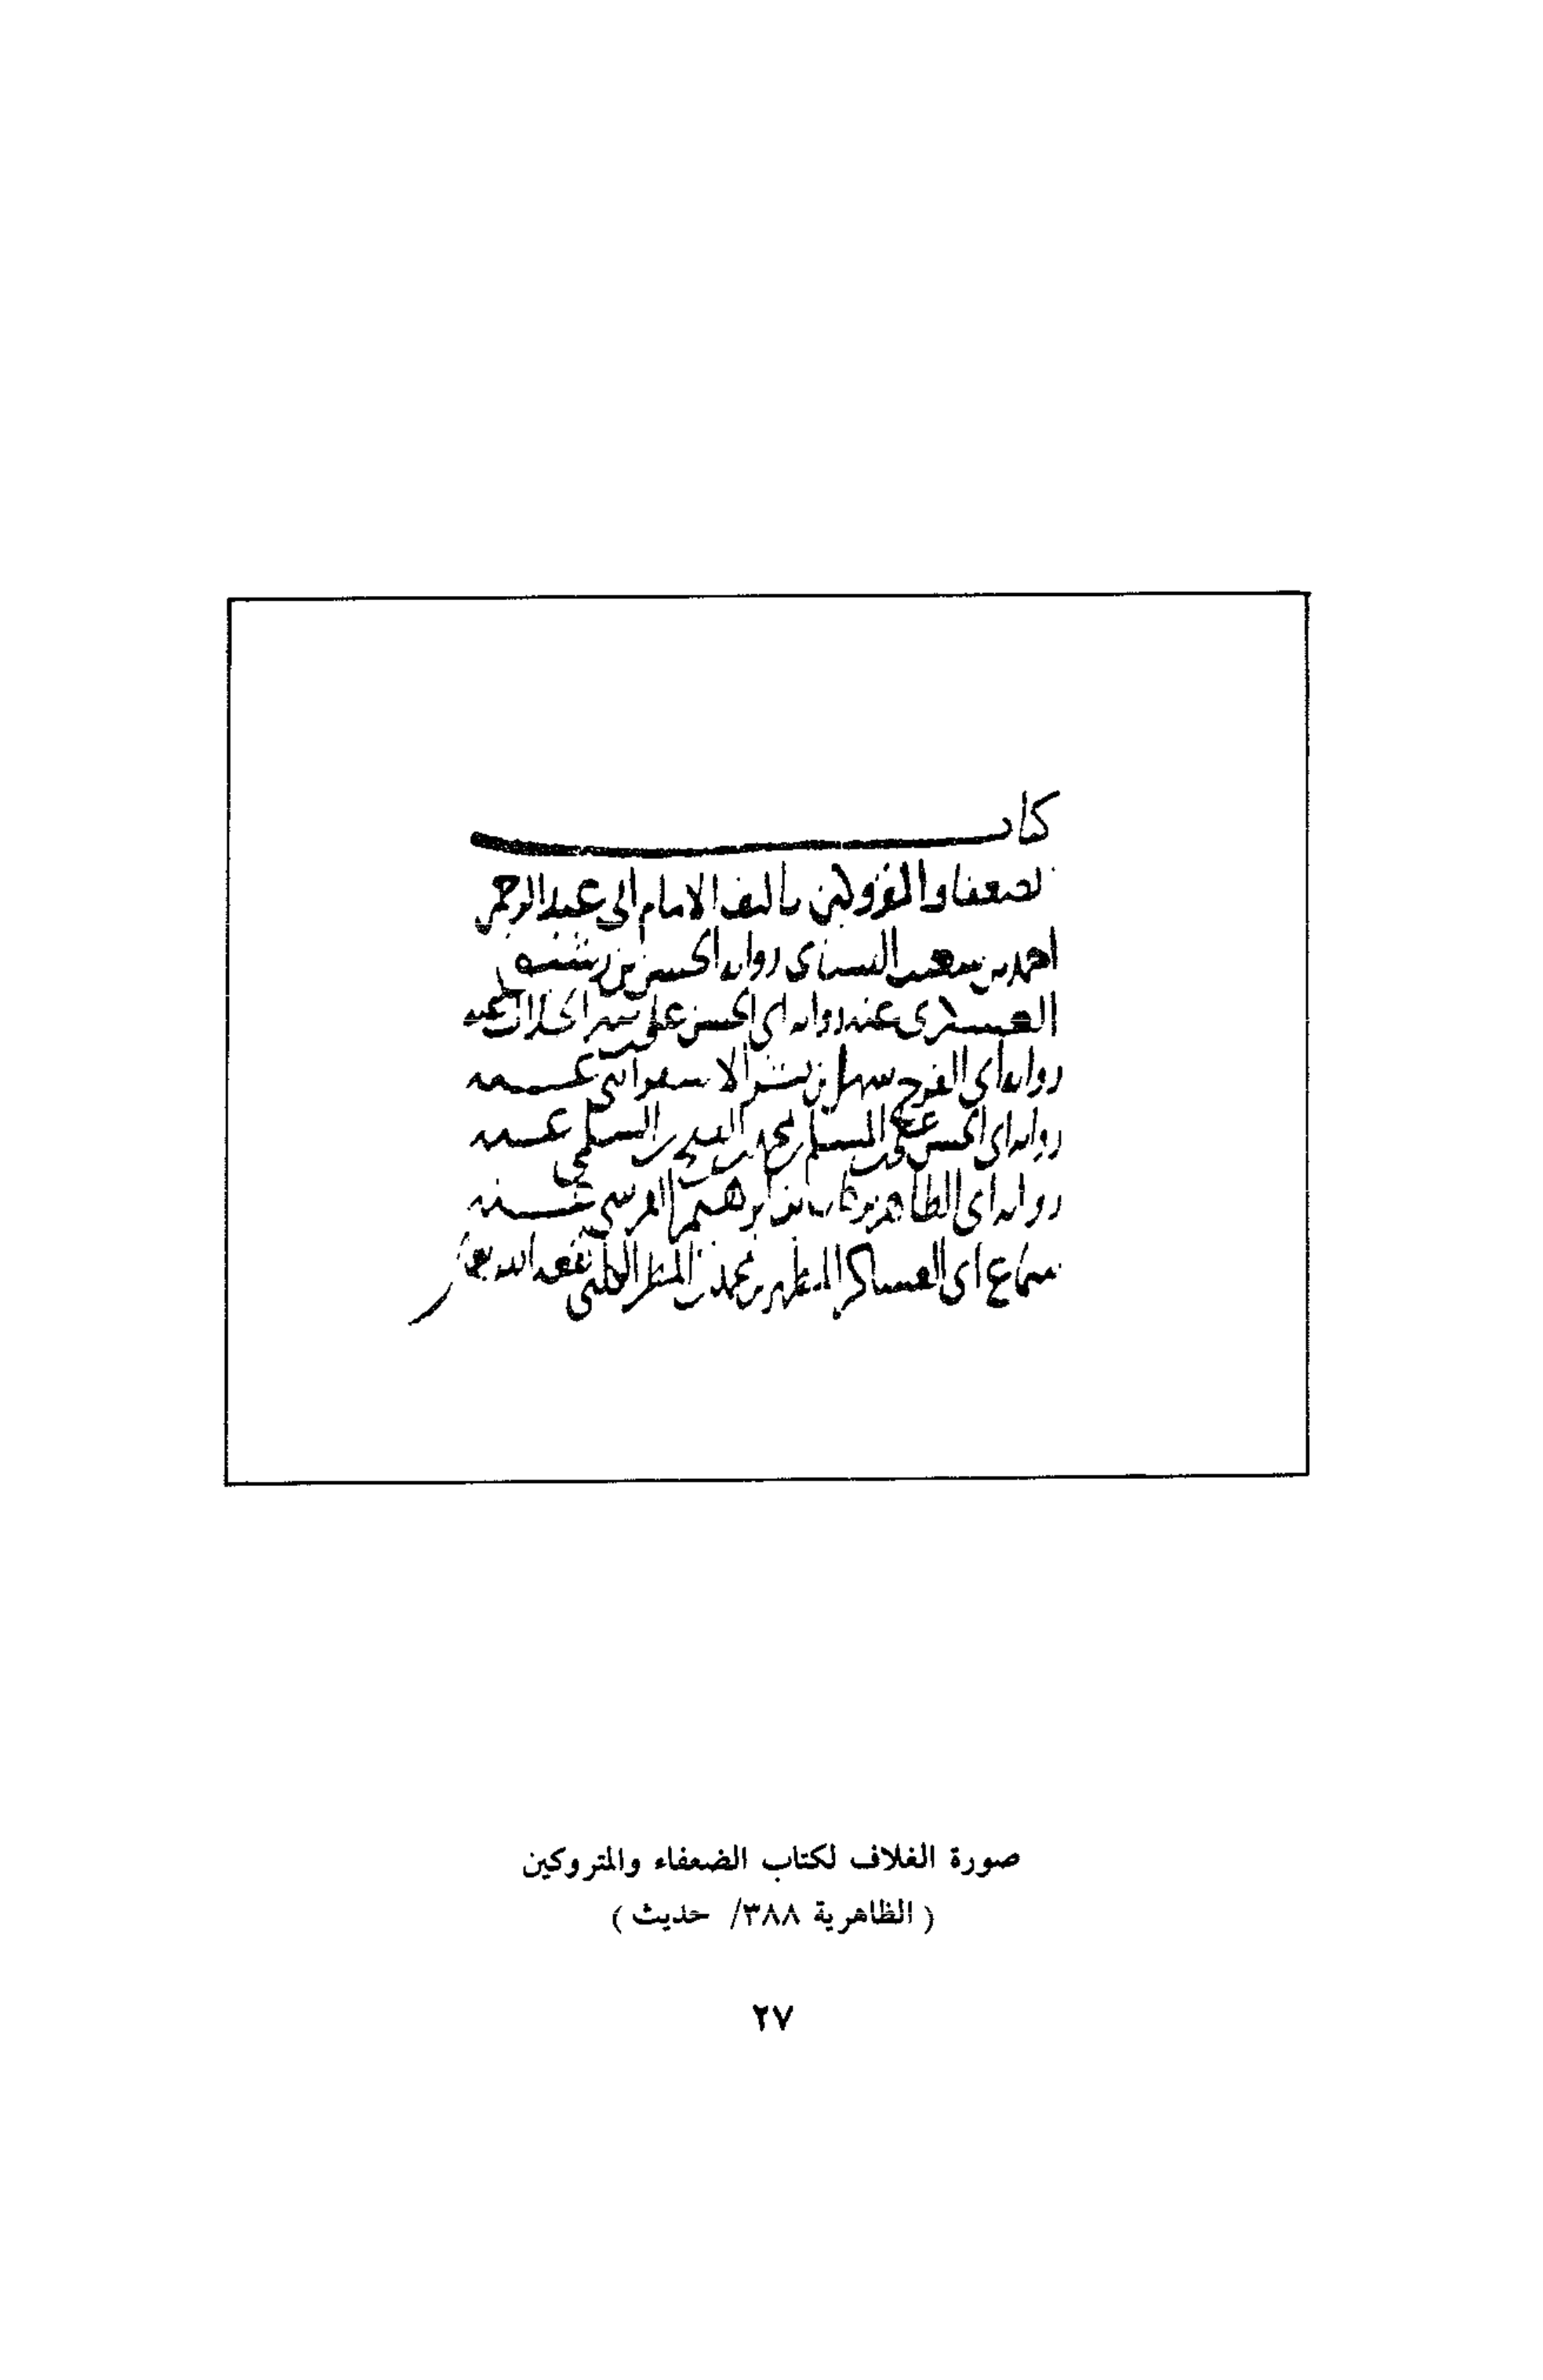 كتاب
الضعفاء والمتروكين تاليف الامام ابى عبد الرحمن
احمد بن سعيب النساى رواية الحسن بن رشيق
العسكرى عنه رواية ابى الحسن على بن منير الخلال عنه
رواية ابى الفرج سهل بن بشر الاسفراينى عنه
رواية ابى الحسن على بن المسلم بن محمد بن الفتح السلمى عنه
رواية ابى الطاهر بركات بن ابرهيم القرشى عنه
سماع ابى العساكر المظهر بن محمد بن المظهر نفعه الله به
صورة الغلاف لكتاب الضعفاء والمتروكين
( الظاهرية ٣٨٨/ حديث )
٢٧